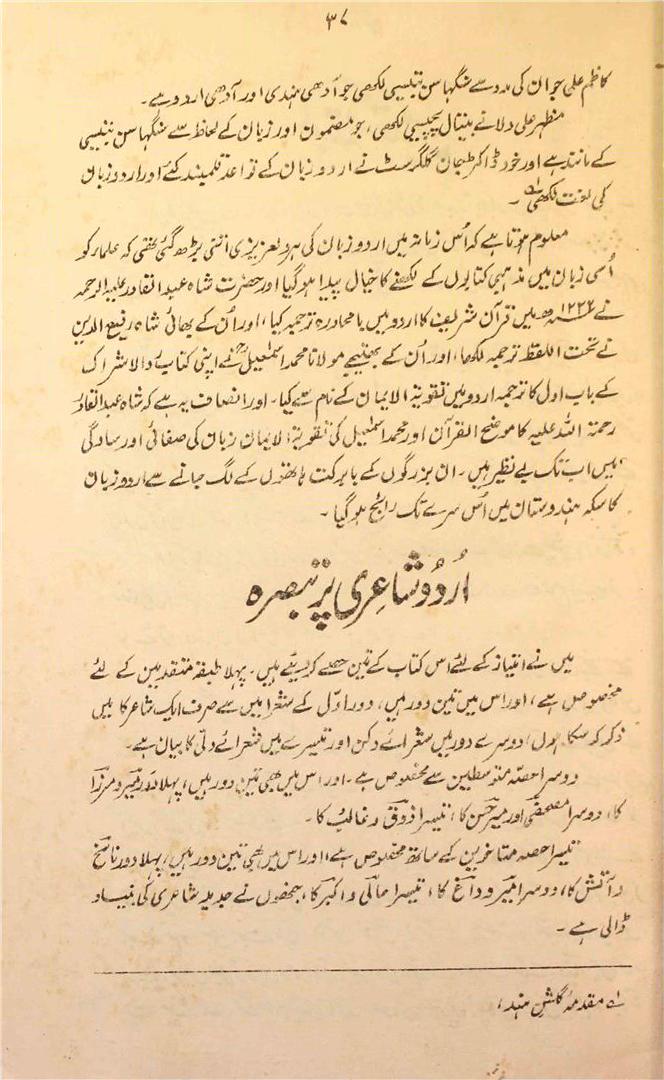 ۳۷
کاظم علی جوان کی مدد سے سنگھاسن بتیسی لکھی جو آدھی ہندی اور آدھی اردو ہے۔
مظہر علی ولا نے بیتال پچیسی لکھی، جو مضمون اور زبان کے لحاظ سے سنگھاسن بتیسی
کے مانند ہے اور خود ڈاکٹر جان گلگرسٹ نے اردو زبان کے قواعد قلمبند کئے اور اردو زبان
کی لغت لکھی۔
معلوم ہوتا ہے کہ اُس زمانہ میں اردو زبان کی ہردلعزیزی اتنی بڑھ گئی تھی کہ علماء کو
اُسی زبان میں مذہبی کتابوں کے لکھنے کا خیال پیدا ہو گیا اور حضرت شاہ عبدالقادر علیہ الرحمہ
نے ۱۲۲۲ھ میں قرآن شریف کا اردو میں بامحاورہ ترجمہ کیا، اور اُن کے بھائی شاہ رفیع الدین
نے تحت اللفظ ترجمہ لکھا، اور اُن کے بھتیجے مولانا محمد اسمٰعیلؒ نے اپنی کتاب ردالاشراک
کے باب اول کا ترجمہ اردو میں تقویۃ الایمان کے نام سے کیا۔ اور انصاف یہ ہے کہ شاہ عبدالقادر
رحمۃ اللہ علیہ کا موضح القرآن اور محمد اسمٰعیل کی تقویۃ الایمان زبان کی صفائی اور سادگی
میں اب تک بے نظیر ہیں۔ ان بزرگوں کے بابرکت ہاتھوں کے لگ جانے سے اردو زبان
کا سکہ ہندوستان میں اُس سرے تک رائج ہو گیا۔
اُردُو شاعِری پر تبصرہ
میں نے امتیاز کے لئے اس کتاب کے تین حصے کر دیئے ہیں۔ پہلا طبقہ متقدمین کے لئے
مخصوص ہے، اور اس میں تین دور ہیں، دور اوّل کے شعرا میں سے صرف ایک شاعر کا میں
ذکر کر سکا ہوں، دوسرے دور میں شعرائے دکن اور تیسرے میں شعرائے دلّی کا بیان ہے۔
دوسرا حصّہ متوسطین سے مخصوص ہے۔ اور اس میں بھی تین دور ہیں، پہلا دَور میر و مرزا
کا، دوسرا مصحفی اور میر حسن کا، تیسرا ذوق و غالب کا۔
تیسرا حصہ متاخرین کے ساتھ مخصوص ہے، اور اس میں بھی تین دور ہیں، پہلا دور ناسخ
و آتش کا، دوسرا امیر و داغ کا، تیسرا حالی و اکبر کا، جنھوں نے جدید شاعری کی بنیاد
ڈالی ہے۔
لہ مقدمۂ گلشنِ ہند،